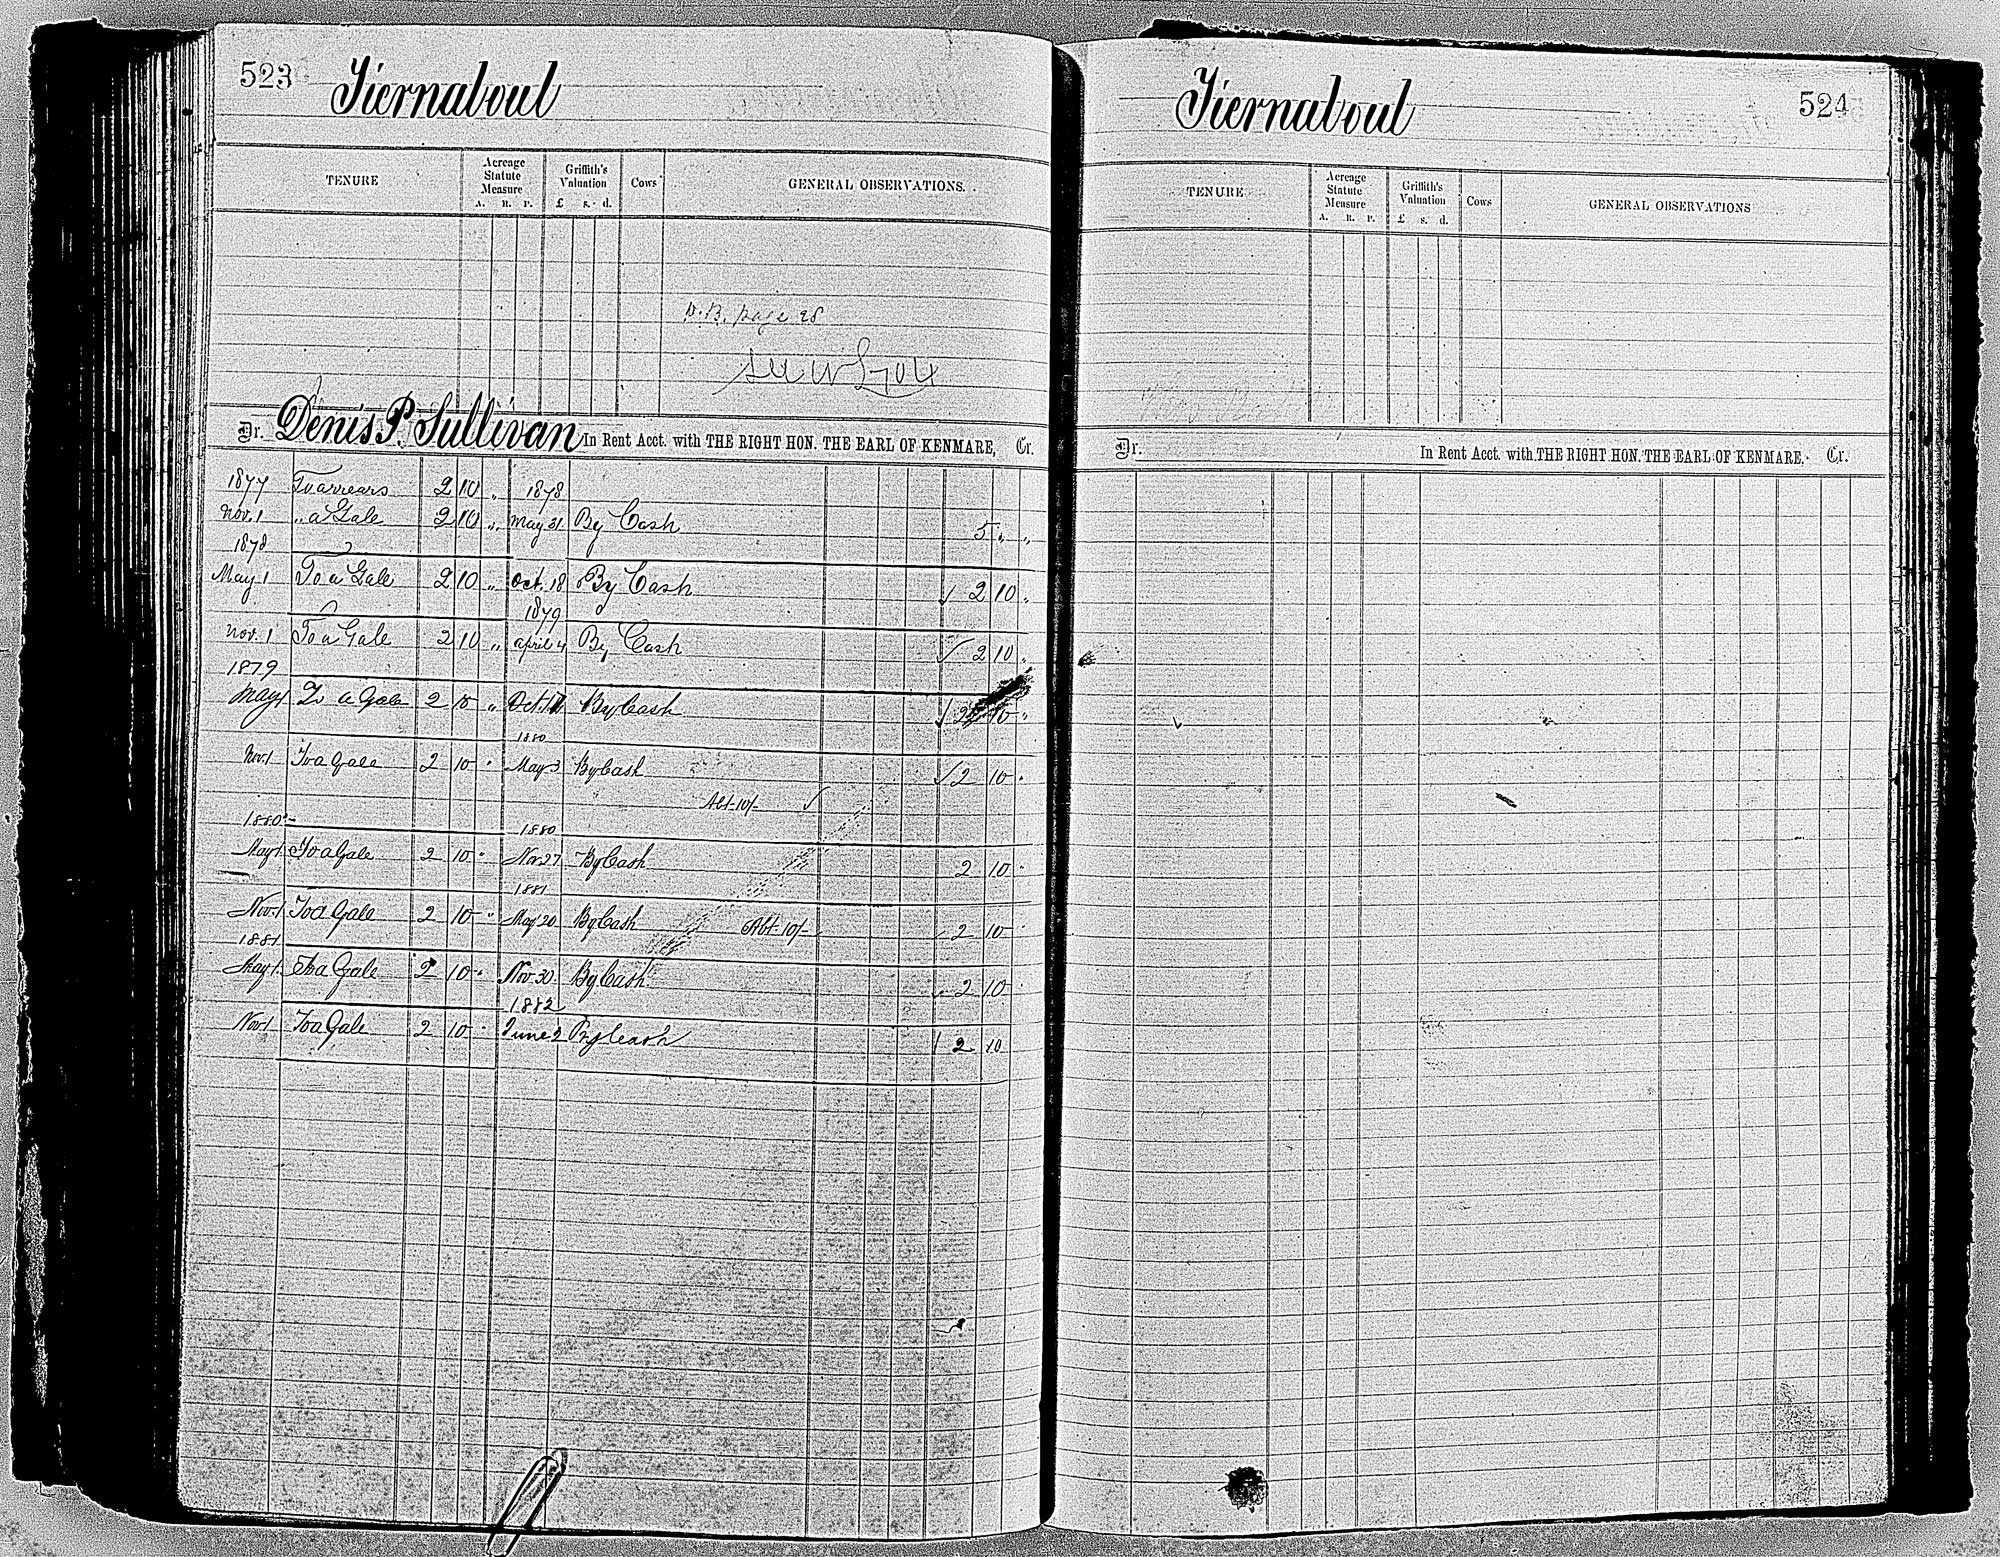 523 Tiernaboul
TENURE Acreage Statute Measure A. R. P. Griffith's Valuation £ s. d. Cows GENERAL OBSERVATIONS.
D.B. page 28
Dr. Denis P. Sullivan In Rent Acct. with THE RIGHT HON. THE EARL OF KENMARE, Cr.
1877 To arrears 2 10 „ 1878
Nov. 1 „ a Gale 2 10 „ May 31 By Cash 5 „ „
1878
May 1 To a Gale 2 10 „ Oct. 18 By Cash 2 10 „
1879
Nov. 1 To a Gale 2 10 „ April 4 By Cash 2 10 „
1879
May 1 To a Gale 2 10 „ Oct. By Cash 2 10 „
1880
Nov. 1 To a Gale 2 10 " May 3 By Cash 2 10 "
Abt 10/-
1880 1880
May 1 To a Gale 2 10 " Nov 27 By Cash 2 10 "
1881
Nov. 1 To a Gale 2 10 " May 20 By Cash Abt 10/- 2 10 "
1881
May 1. To a Gale 2 10 " Nov. 30 By Cash 2 10 "
1882
Nov 1 To a Gale 2 10 " June 2 By Cash 2 10
Tiernaboul 524
TENURE Acreage Statute Measure A. R. P. Griffith's Valuation £ s. d. Cows GENERAL OBSERVATIONS
Dr. In Rent Acct. with THE RIGHT HON. THE EARL OF KENMARE, Cr.